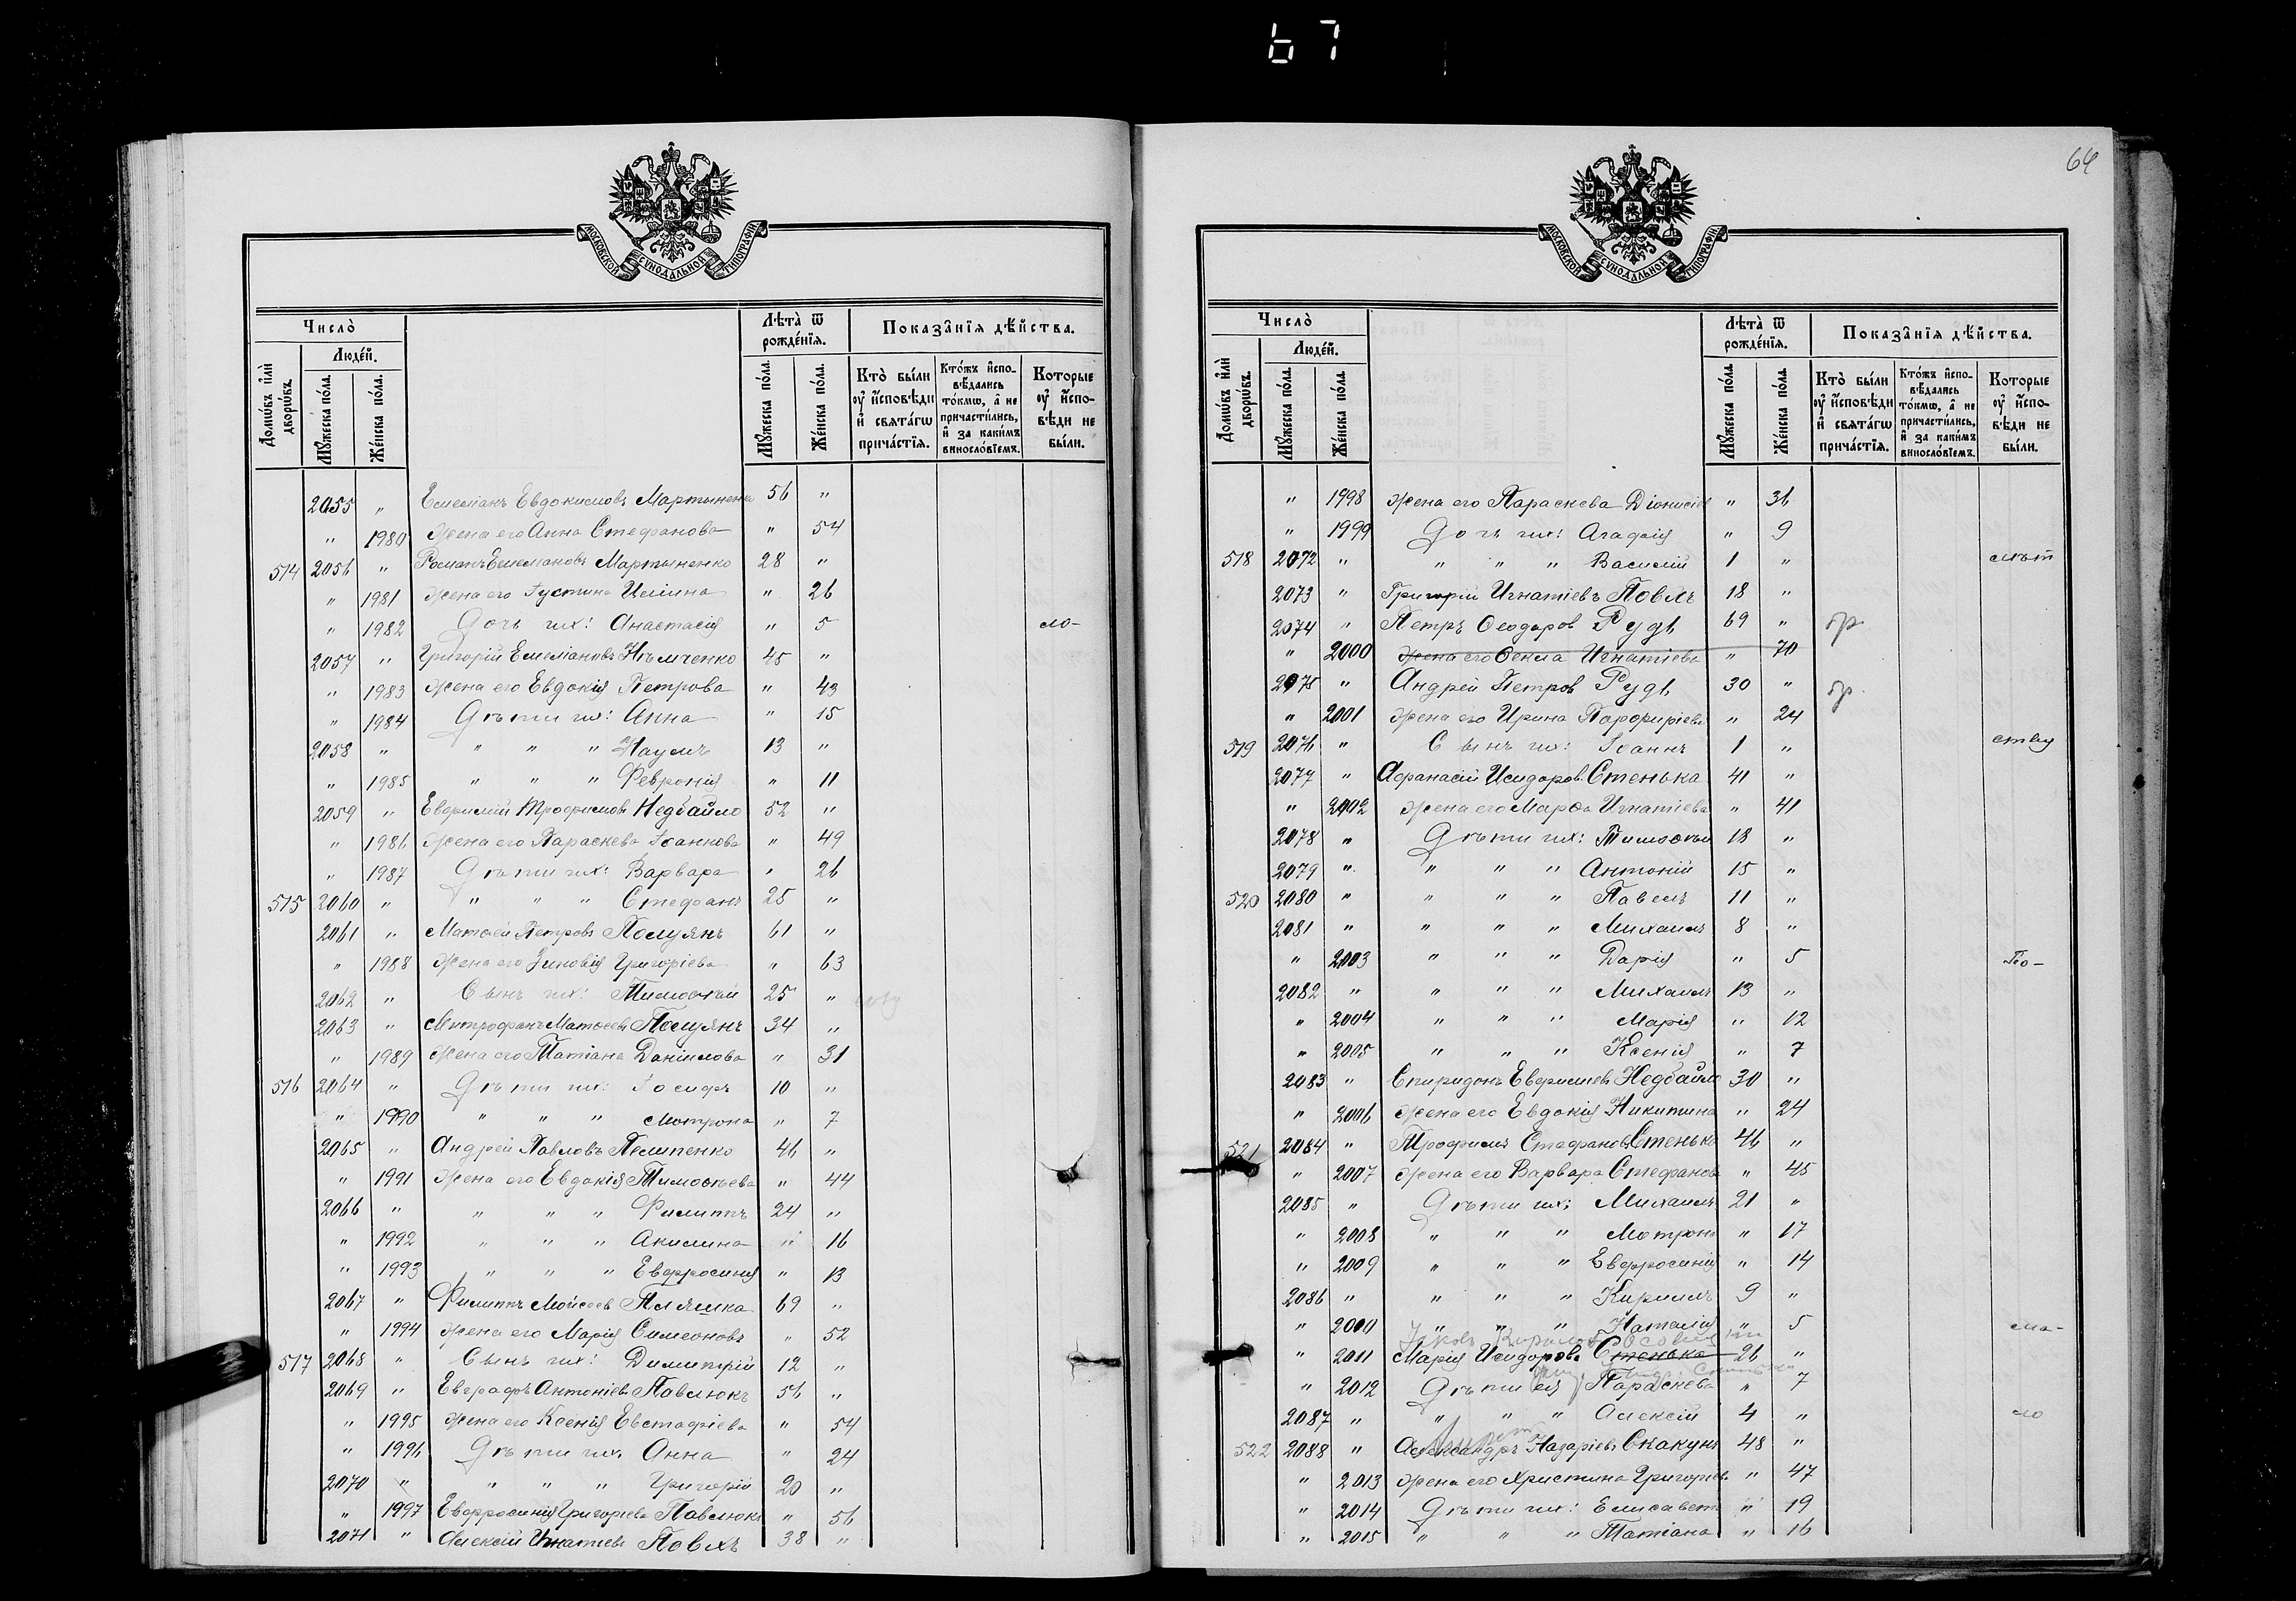 67
64
МОСКОВСКОЙ СѴНОДАЛЬНОЙ ТИПОГРАФІИ
Число̀
Люде́й.
Домѡ́въ и҆лѝ дворѡ́въ.
Мꙋ́жеска по́ла.
Же́нска по́ла.
Лѣ́та ѿ рожде́нїѧ.
Мꙋ́жеска по́ла.
Же́нска по́ла.
Показа̑нїѧ дѣ́йства.
Кто̀ бы́ли оу҆ и҆́сповѣди и҆ свѧта́гѡ прича́стїѧ.
Кто́жъ и҆спо- вѣ́дались то́кмѡ, а҆ не причасти́лись, и҆ за каки́мъ виносло́вїемъ.
Которые оу҆ и҆́спо- вѣди не бы́ли.
2055 " Емеліанъ Евдокимовъ Мартыненко 56 "
" 1980 Жена его Анна Стефанова " 54
514 2056 " Романъ Емеліановъ Мартыненко 28 "
" 1981 Жена его Іустина Иліина " 26
" 1982 Дочь ихъ: Анастасія " 5 мо-
2057 " Григорій Емеліановъ Нѣмченко 45 "
" 1983 Жена его Евдокія Петрова " 43
" 1984 Дѣти ихъ: Анна " 15
2058 " " " " Наумъ 13 "
" 1985 " " " Февронія " 11
2059 " Евфимій Трофимовъ Недбайло 52 "
" 1986 Жена его Параскева Іоаннова " 49
" 1987 Дѣти ихъ: Варвара " 26
515 2060 " " " " Стефанъ 25 "
2061 " Матѳей Петровъ Полуянъ 61 "
" 1988 Жена его Зиновія Григоріева " 63
2062 " Сынъ ихъ: Тимоѳей 25 "
2063 " Митрофанъ Матѳеевъ Полуянъ 34 "
" 1989 Жена его Татіана Даніилова " 31
516 2064 " Дѣти ихъ: Іосифъ 10 "
" 1990 " " " Мотрона " 7
2065 " Андрей Павловъ Пилипенко 46 "
" 1991 Жена его Евдокія Тимоѳеева " 44
2066 " " " " Филиппъ 24 "
" 1992 " " " Акилина " 16
" 1993 " " " Евфросинія " 13
2067 " Филиппъ Мойсеевъ Пляшка 69 "
" 1994 Жена его Марія Симеонова " 52
517 2068 " Сынъ ихъ: Димитрій 12 "
2069 " Евграфъ Антоніевъ Павлюкъ 56 "
" 1995 Жена его Ксенія Евстафіева " 54
" 1996 Дѣти ихъ: Анна " 24
2070 " " " " Григорій 20 "
" 1997 Евфросинія Григоріева Павлюкъ " 56
2071 " Алексій Игнатіевъ Повхъ 38 "
МОСКОВСКОЙ СѴНОДАЛЬНОЙ ТИПОГРАФІИ
Число̀
Люде́й.
Домѡ́въ и҆лѝ дворѡ́въ.
Мꙋ́жеска по́ла.
Же́нска по́ла.
Лѣ́та ѿ рожде́нїѧ.
Мꙋ́жеска по́ла.
Же́нска по́ла.
Показа̑нїѧ дѣ́йства.
Кто̀ бы́ли оу҆ и҆́сповѣди и҆ свѧта́гѡ прича́стїѧ.
Кто́жъ и҆спо- вѣ́дались то́кмѡ, а҆ не причасти́лись, и҆ за каки́мъ виносло́вїемъ.
Которые оу҆ и҆́спо- вѣди не бы́ли.
" 1998 Жена его Параскева Діонисіев " 36
" 1999 Дочь ихъ: Агафія " 9
518 2072 " " " " Василій 1 "
2073 " Григорій Игнатіевъ Повхъ 18 "
2074 " Петръ Ѳеодоров Рудь 69 "
" 2000 Жена его Ѳекла Игнатіева " 70
2075 " Андрей Петров Рудь 30 "
" 2001 Жена его Ирина Парфиріева " 24
519 2076 " Сынъ ихъ: Іоаннъ 1 "
2077 " Афанасій Исидоров Стенька 41 "
" 2002 Жена его Марѳа Игнатіева " 41
2078 " Дѣти ихъ: Тимоѳей 18 "
2079 " " " " Антоній 15 "
520 2080 " " " " Павелъ 11 "
2081 " " " " Михаилъ 8 "
" 2003 " " " Дарія " 5 по-
2082 " " " " Михаилъ 13 "
" 2004 " " " Марія " 12
" 2005 " " " Ксенія " 7
2083 " Спиридонъ Евфиміевъ Недбайло 30 "
" 2006 Жена его Евдокія Никитина " 24
521 2084 " Трофимъ Стефановъ Стенька 46 "
" 2007 Жена его Варвара Стефанова " 45
2085 " Дѣти ихъ: Михаилъ 21 "
" 2008 " " " Мотрона " 17
" 2009 " " " Евфросинія " 14
2086 " " " " Кириллъ 9 "
" 2000 " " " Наталія " 5
" 2011 Марія Исидорова Стенька 26 "
" 2012 Дѣти ея Параскева " 7
2087 " " " " Алексій 4 "
522 2088 " Александръ Назаріевъ Скакунъ 48 "
" 2013 Жена его Христина Григоріев " 47
" 2014 Дѣти ихъ: Елисавета " 19
" 2015 " " " Татіана " 16